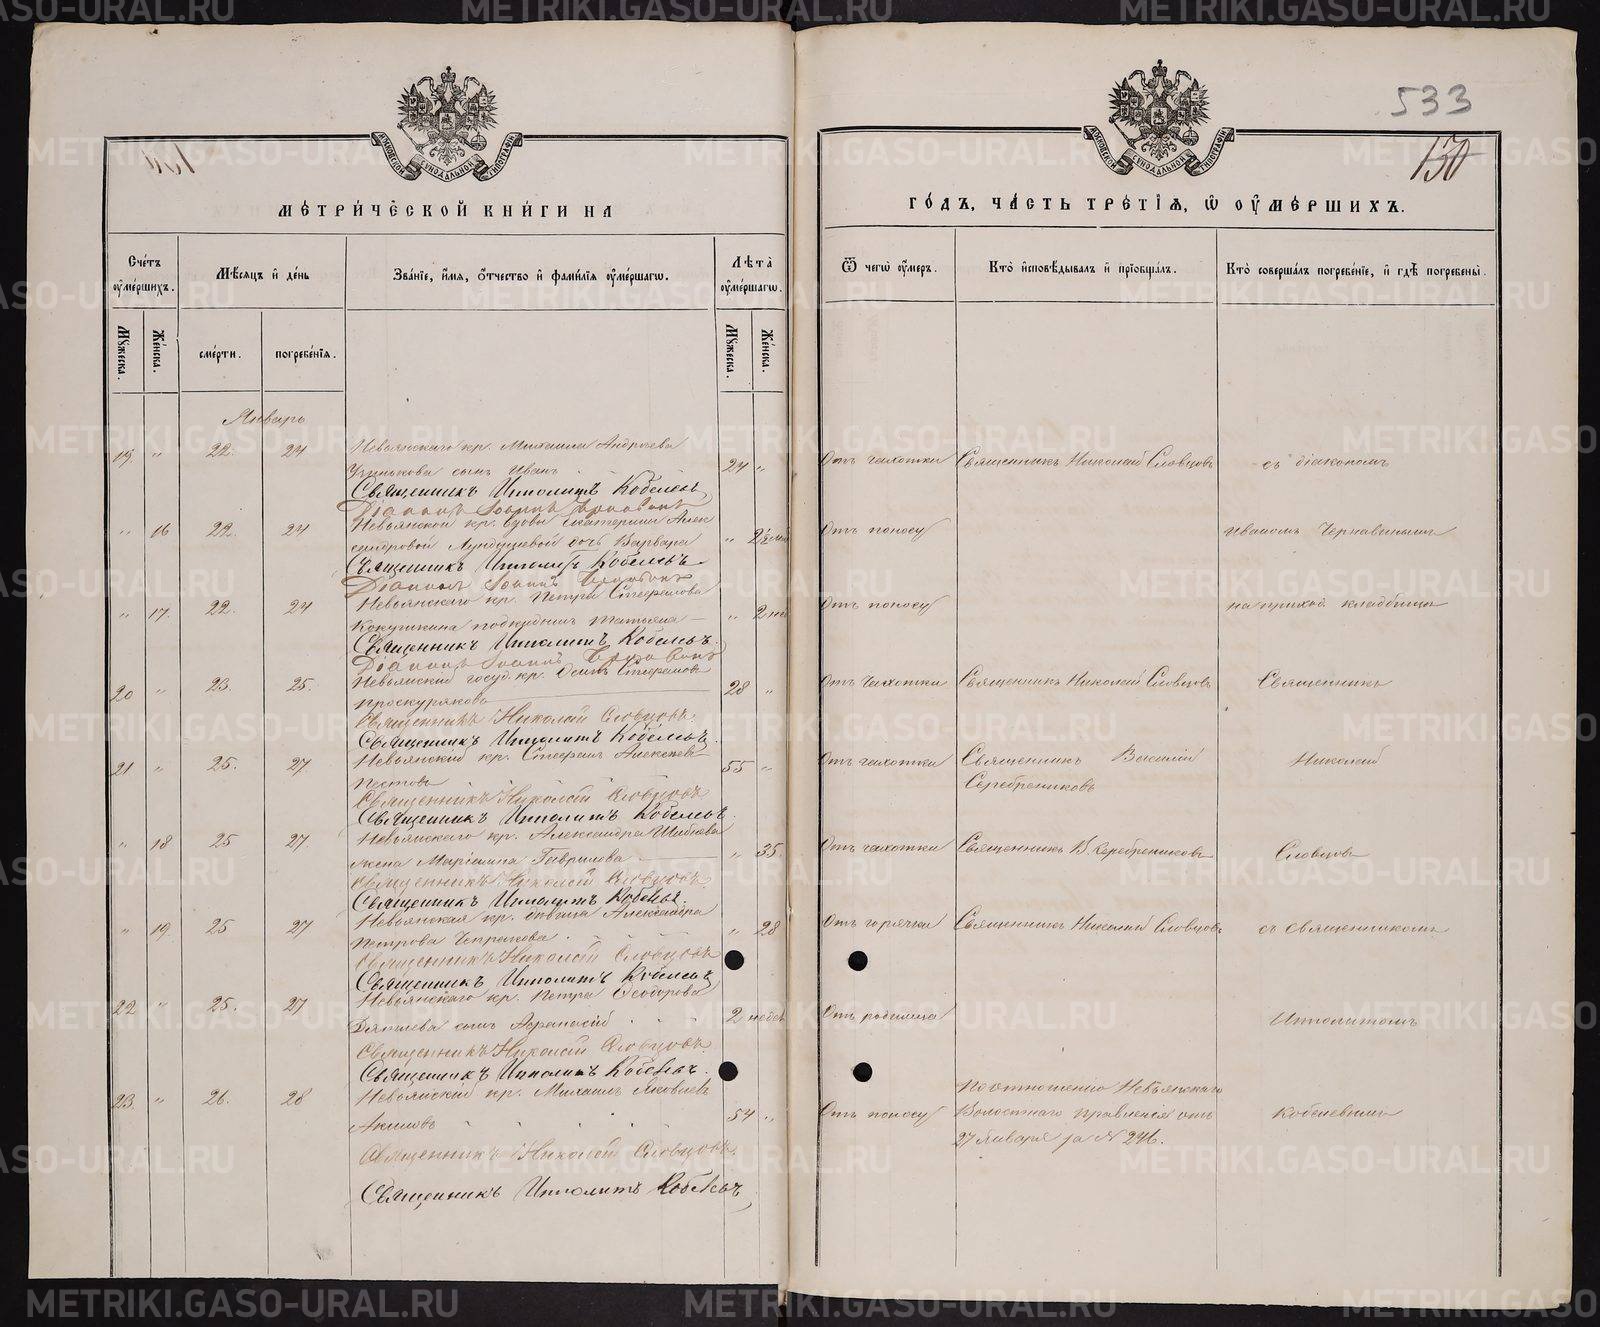 METRIKI.GASO-URAL.RU
533
130
МОСКОВСКОЙ СѴНОДАЛЬНОЙ ТИПОГРАФІИ
МЕТРИЧЕСКОЙ КНИГИ НА
ГОДЪ, ЧАСТЬ ТРЕТІЯ, Ѡ ОУМЕРШИХЪ.
Счетъ оумершихъ.
Мѣсяцъ и день
Званіе, имя, отчество и фамилія оумершагѡ.
Лѣта оумершагѡ.
Ѿ чегѡ оумеръ.
Кто исповѣдывалъ и пріобщалъ.
Кто совершалъ погребеніе, и гдѣ погребены.
Мужеска.
Женска.
смерти.
погребенія.
Мужеска.
Женска.
Январь
19. " 22. 24 Невьянскаго кр. Михаила Андреева
сынъ Иванъ 24 " Отъ чахотки Священникъ Николай Словцовъ съ діакономъ
Священникъ Ипполитъ Кобелевъ
Діаконъ Іоаннъ Чернавинъ
" 16 22. 24 Невьянской кр. вдовы Екатерины Алек
сандровой дочь Варвара " 2½ Отъ поносу Иваномъ Чернавинымъ
Священникъ Ипполитъ Кобелевъ
Діаконъ Іоаннъ Чернавинъ
" 17. 22. 24 Невьянскаго кр. Петра Стефанова
Кокушкина подкидышъ Татьяна " 2 нед Отъ поносу на приход. кладбищѣ
Священникъ Ипполитъ Кобелевъ.
Діаконъ Іоаннъ Чернавинъ
20 " 23. 25. Невьянский госуд. кр. Осипъ Стефановъ
Проскуряковъ 28 " Отъ чахотки Священникъ Николай Словцовъ Священникъ
Священникъ Николай Словцовъ.
Священникъ Ипполитъ Кобелевъ.
21 " 25. 27 Невьянский кр. Стефанъ Алексѣевъ
Пестовъ 55 " Отъ чахотки Священникъ Василій Серебрениковъ Николай
Священникъ Николай Словцовъ
Священникъ Ипполитъ Кобелевъ.
" 18 25 27. Невьянскаго кр. Александра
жена Маріамна Гаврилова " 35. Отъ чахотки Священникъ В. Серебрениковъ Словцовъ
Священникъ Николай Словцовъ.
Священникъ Ипполитъ Кобелевъ.
" 19. 25 27 Невьянская кр. дѣвица Александра
Петрова " 28 Отъ горячки Священникъ Николай Словцовъ съ священникомъ
Священникъ Николай Словцовъ
Священникъ Ипполитъ Кобелевъ
22 " 25. 27 Невьянскаго кр. Петра Ѳеодорова
сынъ Аѳанасій 2 недѣл Отъ родимца Ипполитомъ
Священникъ Николай Словцовъ.
Священникъ Ипполитъ Кобелевъ.
23. " 26. 28 Невьянский кр. Михаилъ Яковлевъ
Акиловъ 54 " Отъ поносу По отношенію Невьянскаго
Волостнаго Правленія отъ Кобелевымъ
27 Января за N 246.
Священникъ Николай Словцовъ.
Священникъ Ипполитъ Кобелевъ